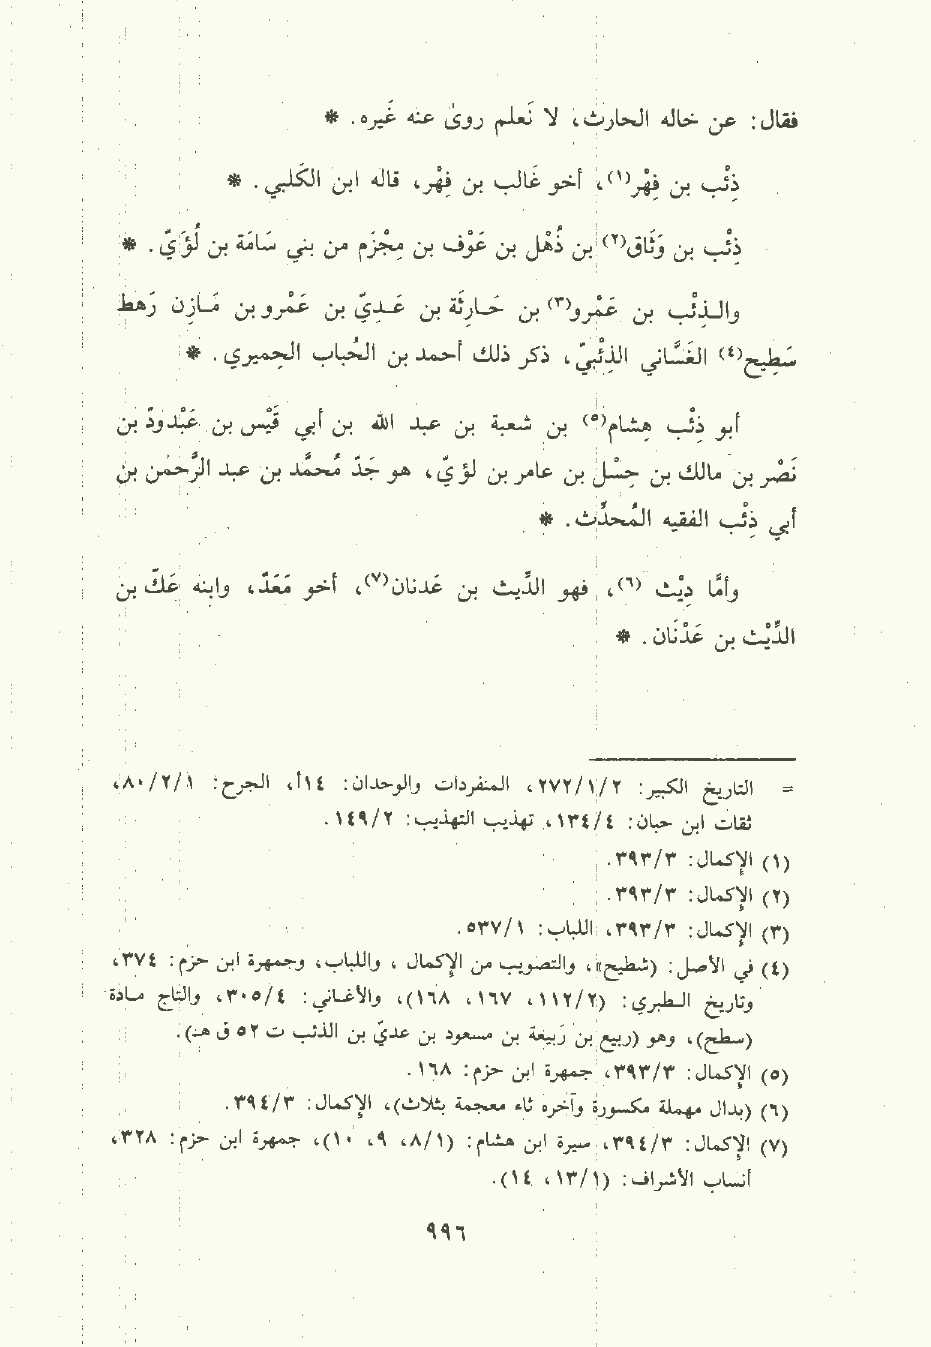 فقال: عن خاله الحارث، لا نَعلم روىٰ عنه غَيره. *
ذِئْب بن فِهْر(١)، أخو غَالب بن فِهْر، قاله ابن الكَلبي. *
ذِئْب بن وَثَاق(٢) بن ذُهْل بن عَوْف بن مِجْزَم من بني سَامَة بن لُؤَيّ. *
والـذِئْب بن عَمْرو(٣) بن حَـارِثَة بن عَـدِيّ بن عَمْرو بن مَـازِن رَهط
سَطِيح(٤) الغَسَّاني الذِئْبيّ، ذكر ذلك أحمد بن الحُباب الحِميري. *
أبو ذِئْب هِشام(٥) بن شعبة بن عبد الله بن أبي قَيْس بن عَبْدودّ بن
نَصْر بن مالك بن حِسْل بن عامر بن لؤيّ، هو جَدّ مُحمَّد بن عبد الرَّحمٰن بن
أبي ذِئْب الفقيه المُحدِّث. *
وأمَّا دِيْث (٦)، فهو الدِّيث بن عَدنان(٧)، أخو مَعَدّ، وابنه عَكّ بن
الدِّيْث بن عَدْنَان. *
= التاريخ الكبير: ٢/١/٢٧٢، المنفردات والوحدان: ١٤أ، الجرح: ١/٢/٨٠،
ثقات ابن حبان: ٤/١٣٤، تهذيب التهذيب: ٢/١٤٩.
(١) الإكمال: ٣/٣٩٣.
(٢) الإكمال: ٣/٣٩٣.
(٣) الإكمال: ٣/٣٩٣، اللباب: ١/٥٣٧.
(٤) في الأصل: (شطيح»، والتصويب من الإكمال ، واللباب، وجمهرة ابن حزم: ٣٧٤،
وتاريخ الـطبري: (٢/١١٢، ١٦٧، ١٦٨)، والأغـاني: ٤/٣٠٥، والتاج مـادة
(سطح)، وهو (ربيع بن رَبيعَة بن مسعود بن عديّ بن الذئب ت ٥٢ ق هـ).
(٥) الإكمال: ٣/٣٩٣، جمهرة ابن حزم: ١٦٨.
(٦) (بدال مهملة مكسورة وآخره ثاء معجمة بثلاث)، الإكمال: ٣/٣٩٤.
(٧) الإكمال: ٣/٣٩٤، سيرة ابن هشام: (١/٨، ٩، ١٠)، جمهرة ابن حزم: ٣٢٨،
أنساب الأشراف: (١/١٣، ١٤).
٩٩٦